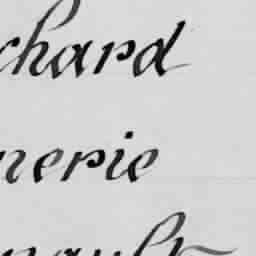 chard
nerie